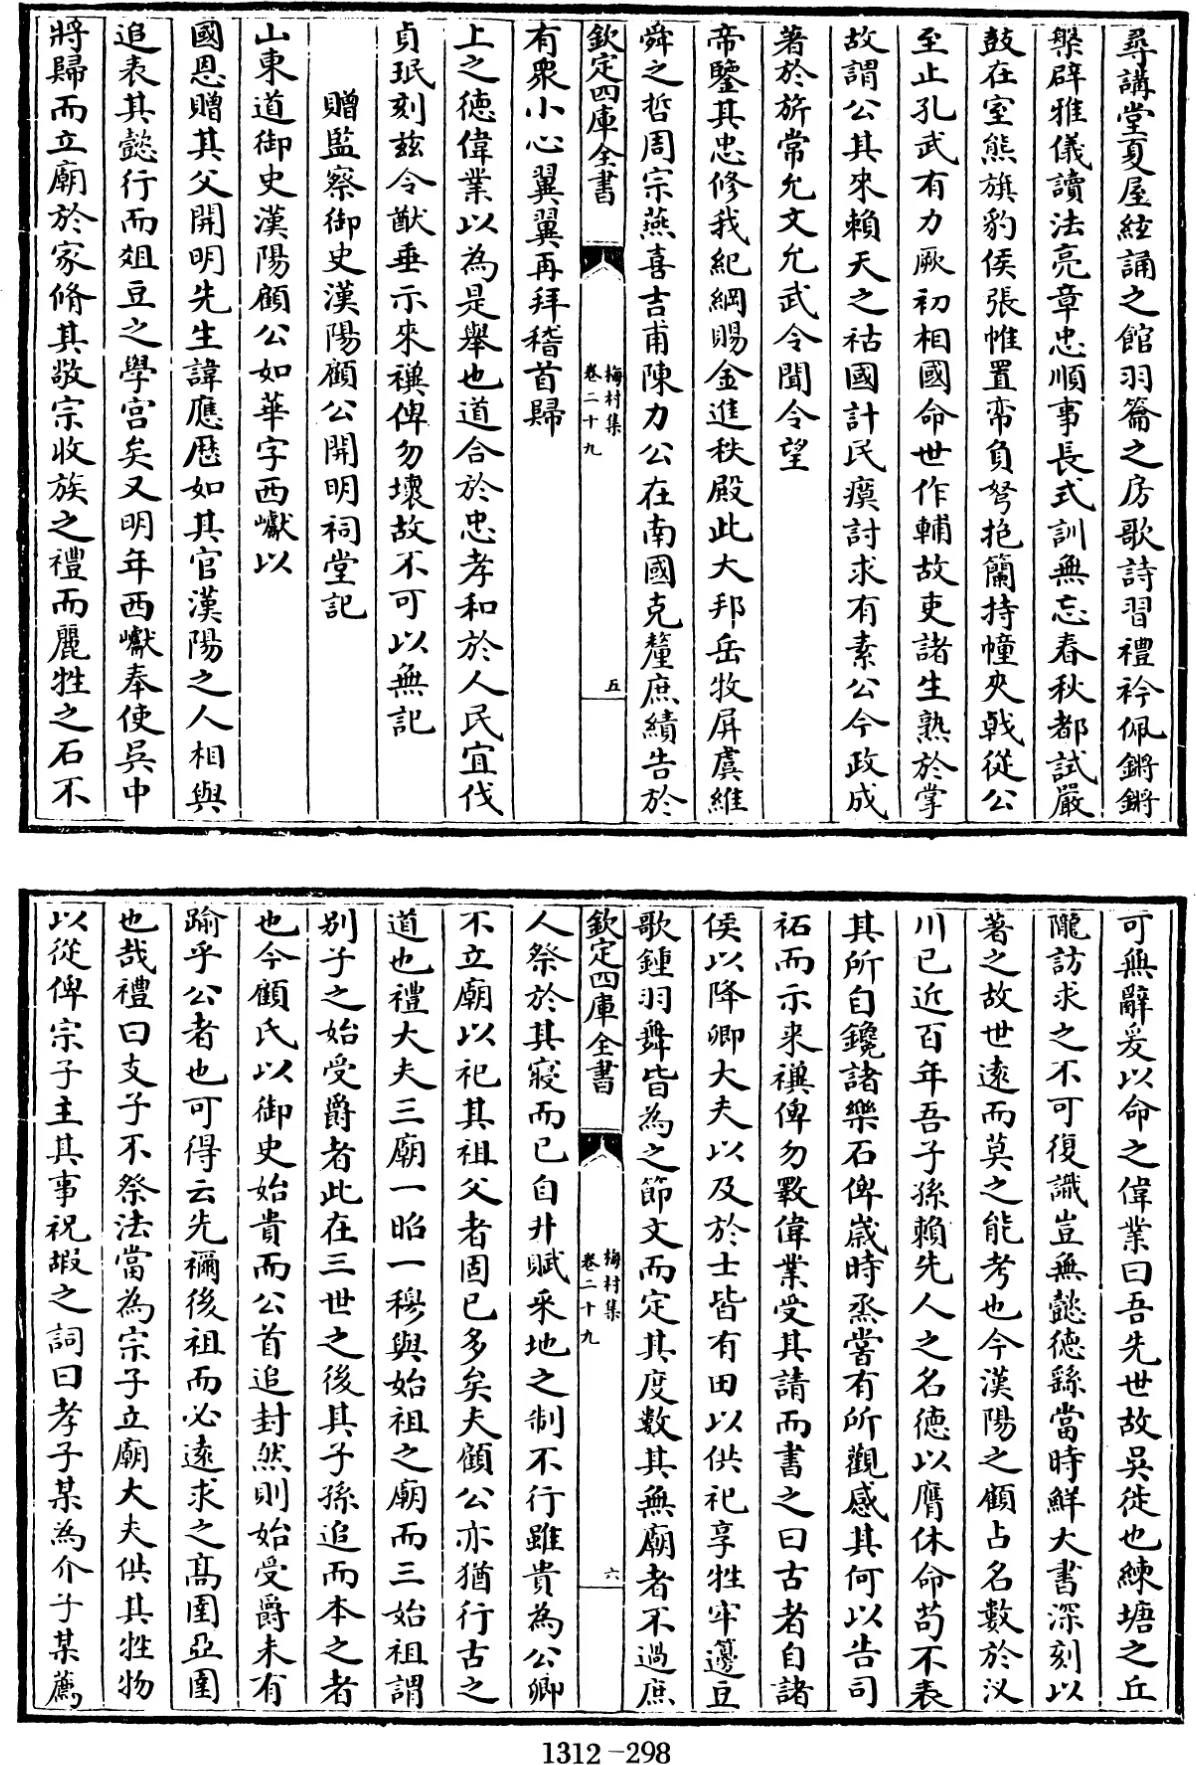 尋講堂夏屋絃誦之館羽籥之房歌詩習禮衿佩鏘鏘
槃辟雅儀讀法亮章忠順事長式訓無忘春秋都試嚴
鼓在室熊旗豹侯張帷置帘負弩抱籣持幢夾戟從公
至止孔武有力厥初相國命世作輔故吏諸生熟於掌
故謂公其來賴天之祜國計民瘼討求有素公今政成
著於旂常允文允武令聞令望
帝鑒其忠修我紀綱賜金進秩殿此大邦岳牧屏虞維
舜之哲周宗燕喜吉甫陳力公在南國克釐庶績告於
欽定四庫全書
梅村集
卷二十九
五
有衆小心翼翼再拜稽首歸
上之德偉業以為是舉也道合於忠孝和於人民宜伐
貞珉刻兹令猷垂示來禩俾勿壞故不可以無記
贈監察御史漢陽顧公開明祠堂記
山東道御史漢陽顧公如華字西巘以
國恩贈其父開明先生諱應歴如其官漢陽之人相與
追表其懿行而俎豆之學宫矣又明年西巘奉使吳中
將歸而立廟於家脩其敬宗收族之禮而麗牲之石不
可無辭爰以命之偉業曰吾先世故吳徙也練塘之丘
隴訪求之不可復識豈無懿德繇當時鮮大書深刻以
著之故世遠而莫之能考也今漢陽之顧占名數於汊
川已近百年吾子孫賴先人之名德以膺休命茍不表
其所自鑱諸樂石俾嵗時烝嘗有所觀感其何以告司
祏而示来禩俾勿斁偉業受其請而書之曰古者自諸
侯以降卿大夫以及於士皆有田以供祀享牲牢籩豆
歌鍾羽舞皆為之節文而定其度數其無廟者不過庶
欽定四庫全書
梅村集
卷二十九
六
人祭於其寢而已自井賦采地之制不行雖貴為公卿
不立廟以祀其祖父者固已多矣夫顧公亦猶行古之
道也禮大夫三廟一昭一穆與始祖之廟而三始祖謂
别子之始受爵者此在三世之後其子孫追而本之者
也今顧氏以御史始貴而公首追封然則始受爵未有
踰乎公者也可得云先禰後祖而必遠求之髙圉亞圉
也哉禮曰支子不祭法當為宗子立廟大夫供其牲物
以從俾宗子主其事祝嘏之詞曰孝子某為介子某薦
1312-298